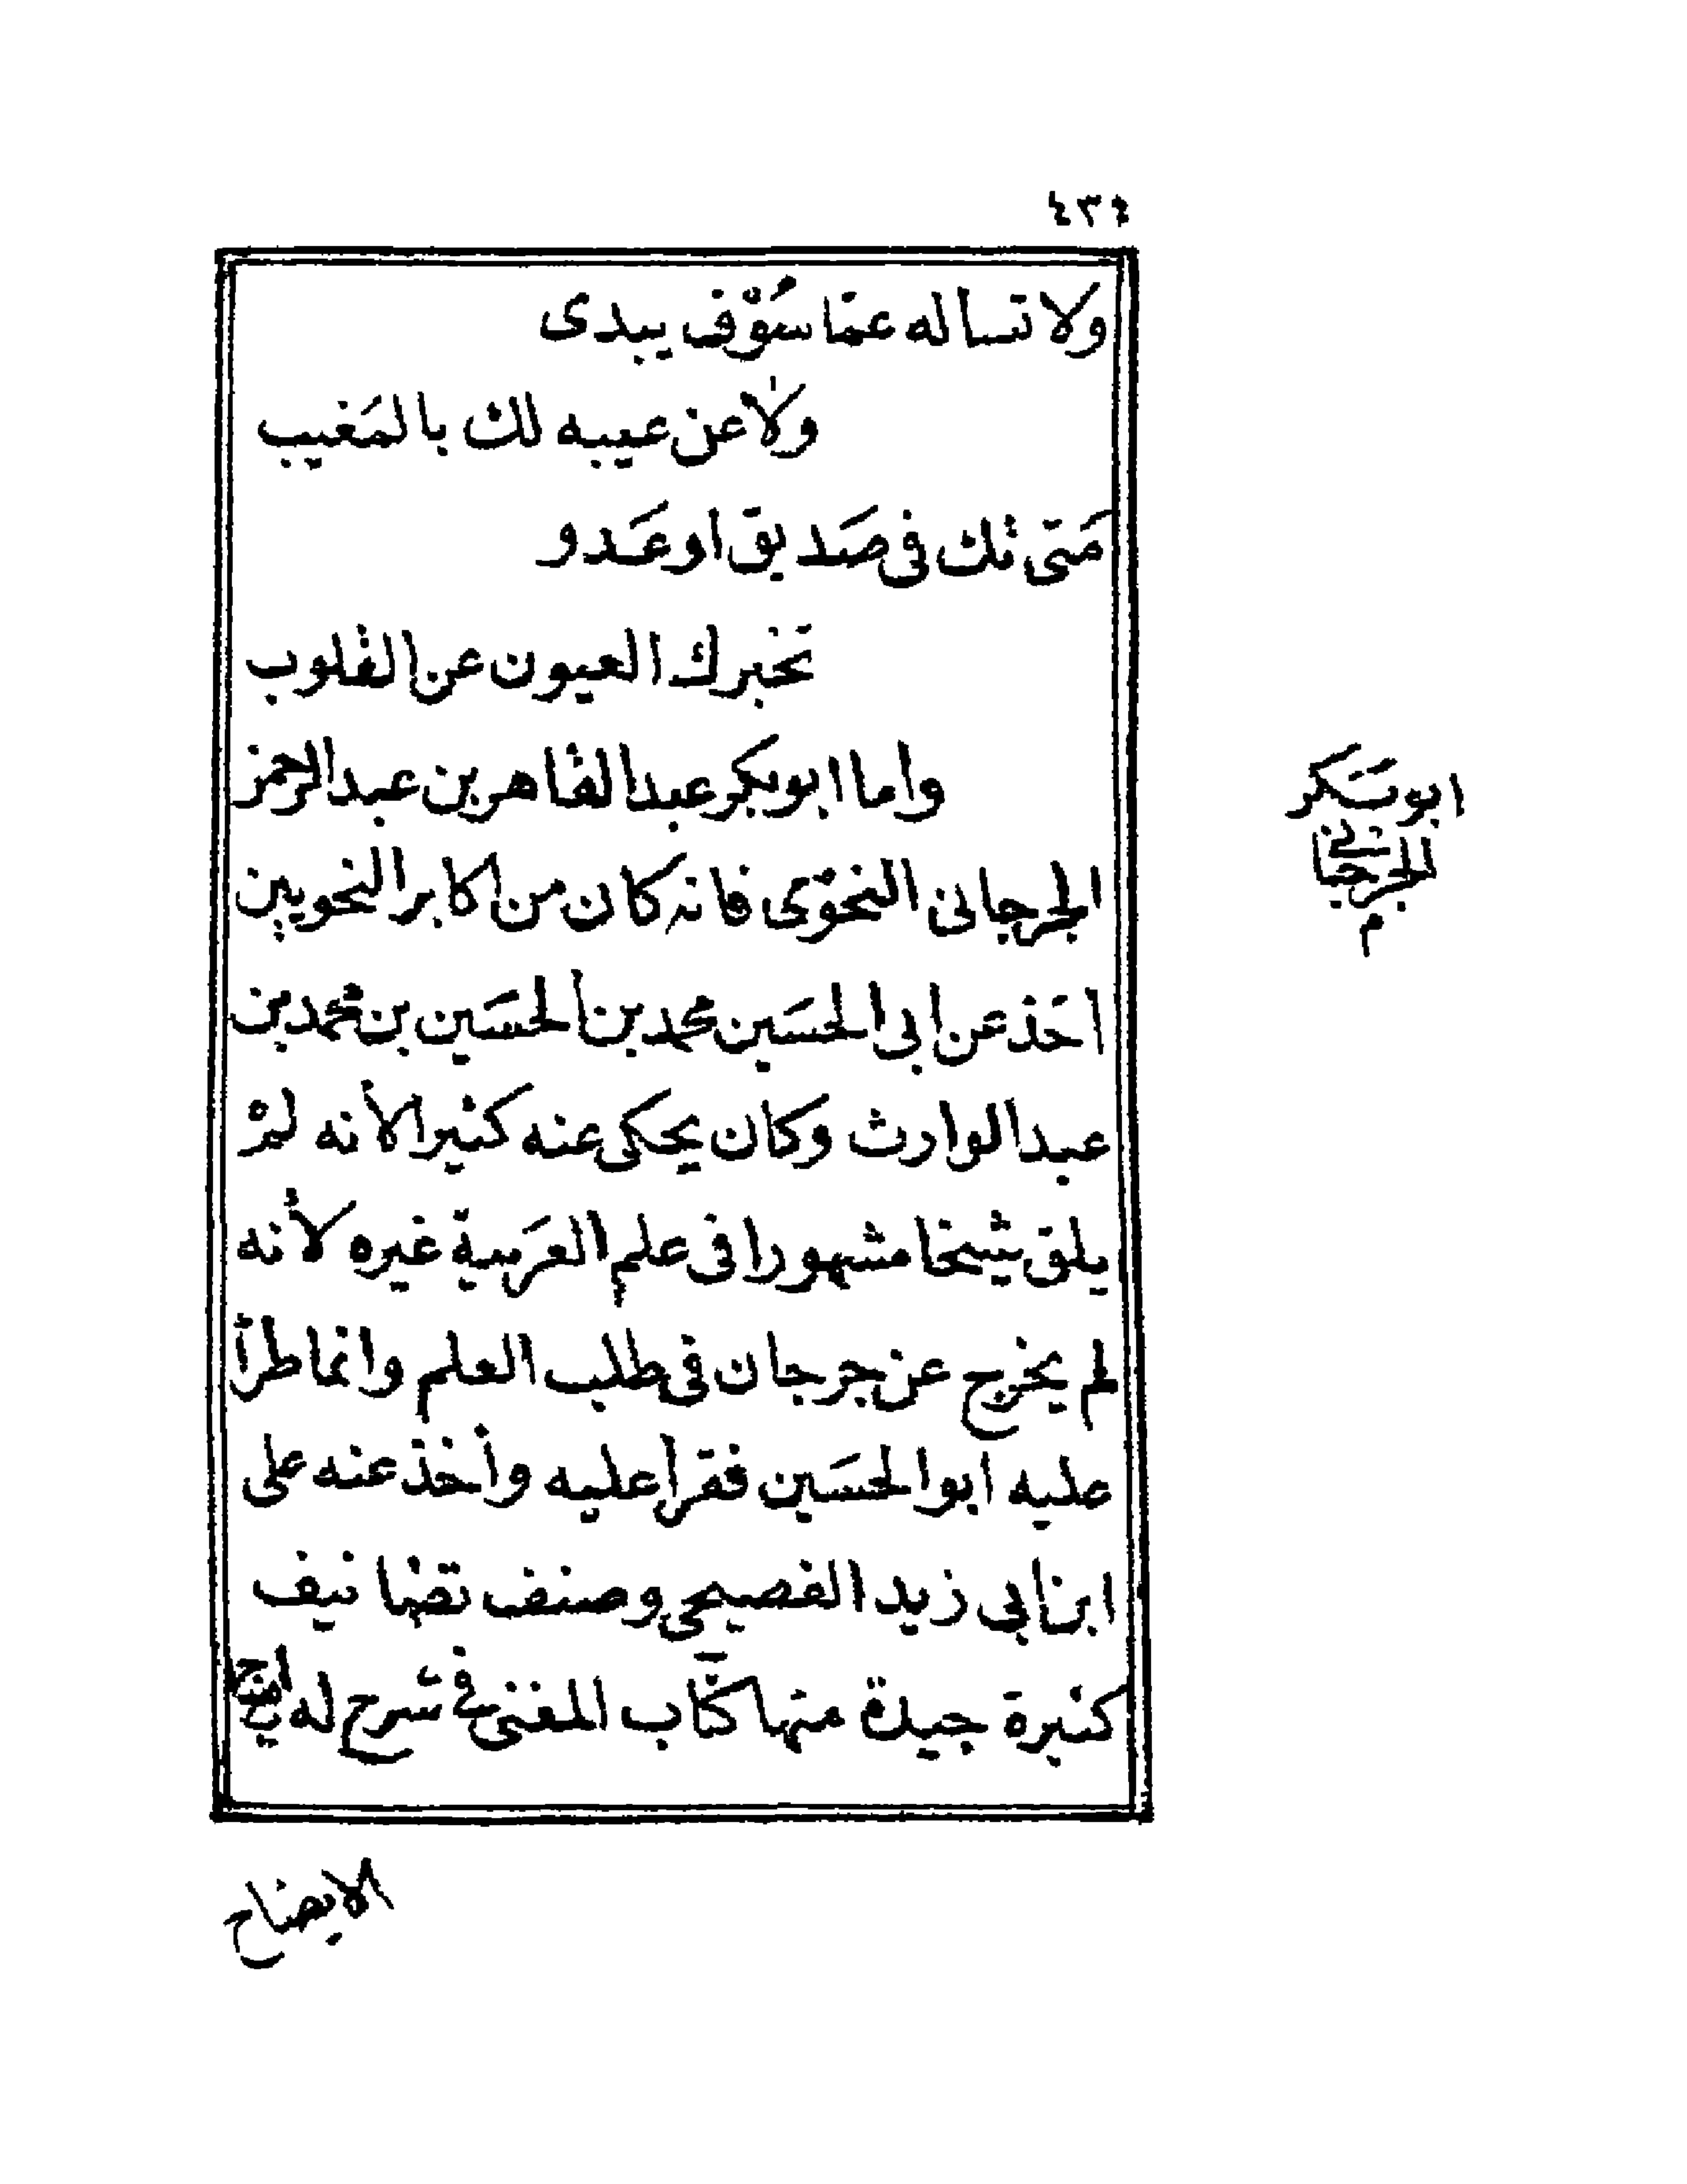 ٤٣٤
ولا تساله عمّا سُوْف يبدى
ولا عن عيبه لك بالمَغيب
مَتى تك فى صَديق او عَدو
تخبرك العيون عن القلوب
واما ابو بكر عبد القاهر بن عبد الرحمن
ابو بكر
الجرجانى
م
الجرجانى النحوْى فانه كان من اكابر النحويين
اخَذ عن ابى الحسَين محمد بن الحسَين بن محمد بن
عبد الوارث وكان يحكى عنه كثيرا لأنه لمْ
يلق شيخا مشهورا فى علم العرَبية غيره لأنه
لم يخرج عن جرجان فى طلب العلم وانما طرأ
عليه ابو الحسَين فقرأ عليه وأخذ عنه على
ابن ابى زيد الفصيحى وصنف تصانيف
كثيرة جيدة منها كتاب المغنى فى شرح له
الايضاح